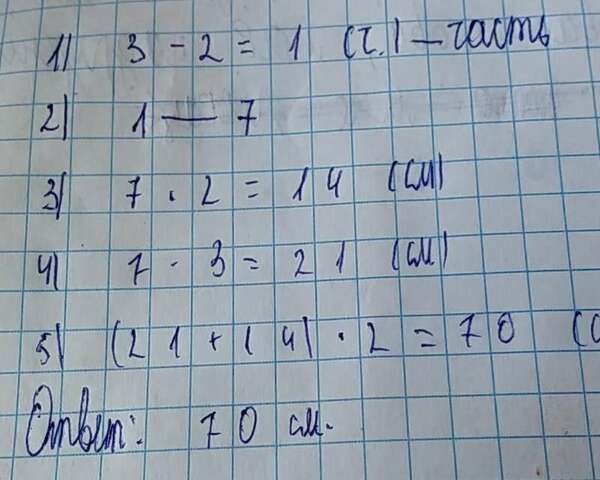 1) 3 - 2 = 1 (ч.) — часть
2) 1 — 7
3) 7 · 2 = 14 (см)
4) 7 · 3 = 21 (см)
5) (21 + 14) · 2 = 70 (с
Ответ: 70 см.